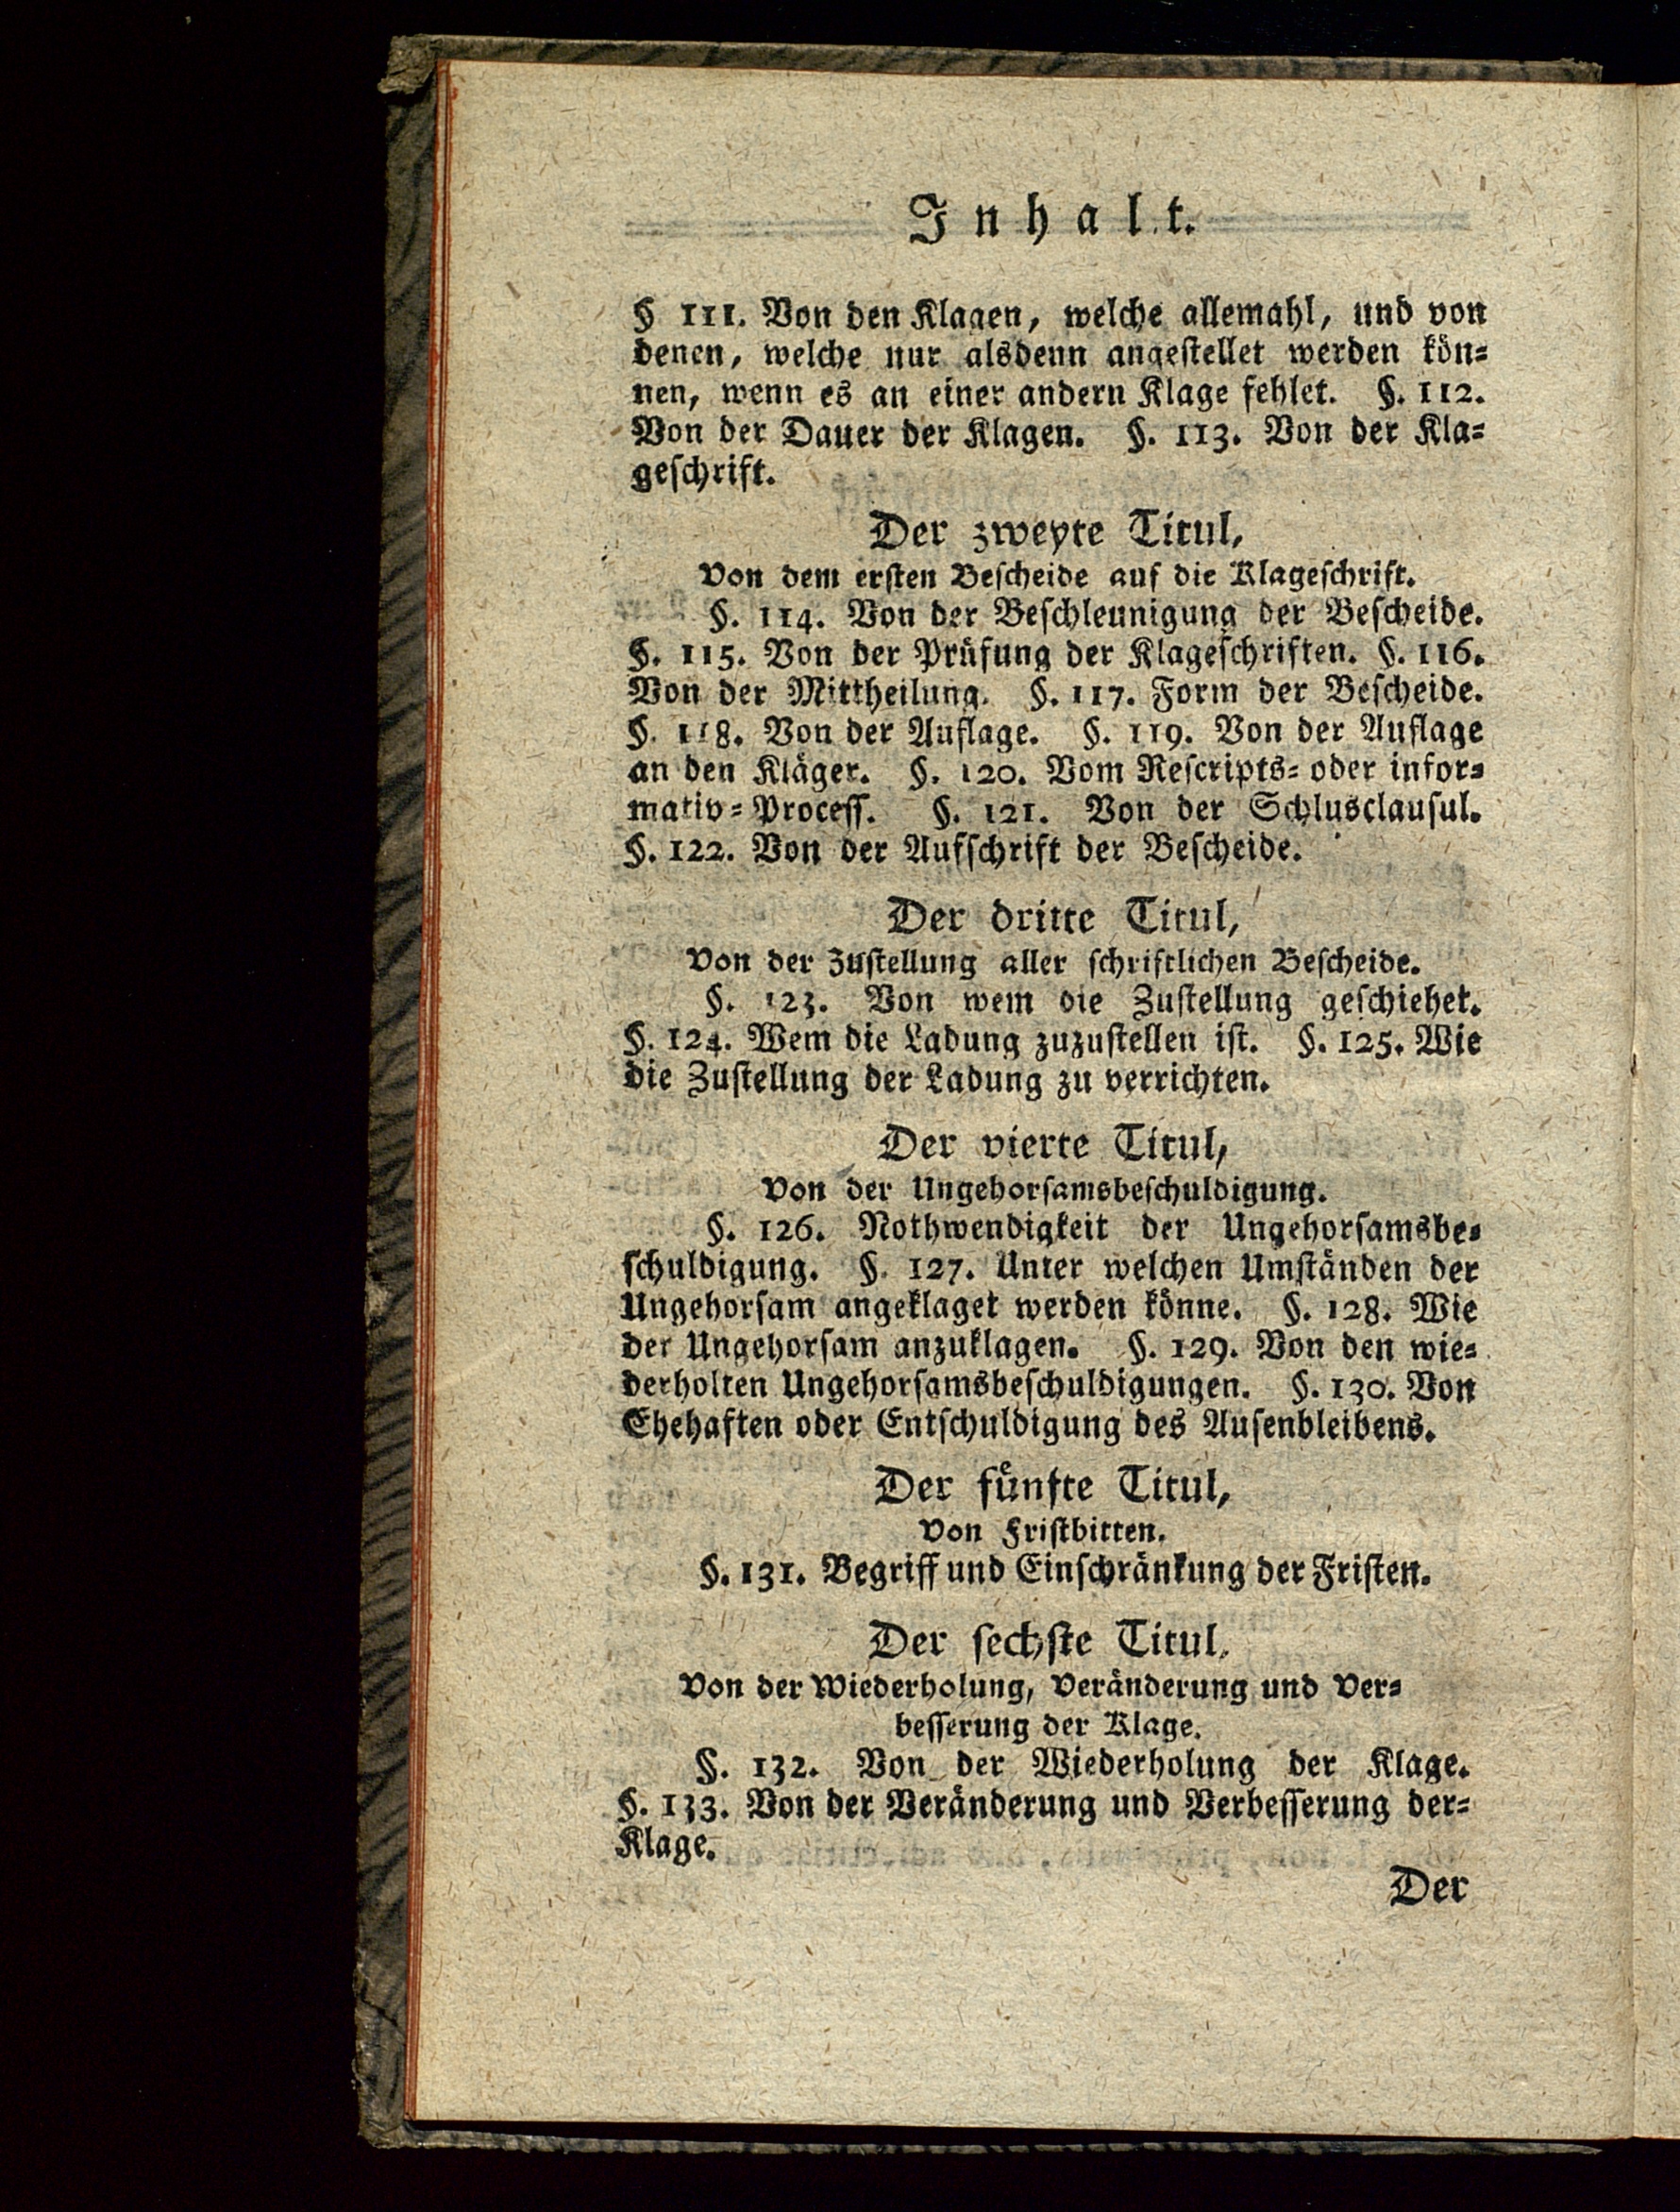 Inhalt.
§ 111. Von den Klagen, welche allemahl, und von
denen, welche nur alsdenn angestellet werden kön-
nen, wenn es an einer andern Klage fehlet. §. 112.
Von der Dauer der Klagen. §. 113. Von der Kla-
geschrift.
Der zweyte Titul,
Von dem ersten Bescheide auf die Klageschrift.
§. 114. Von der Beschleunigung der Bescheide.
§. 115. Von der Prüfung der Klageschriften. §. 116.
Von der Mittheilung. §. 117. Form der Bescheide.
§. 118. Von der Auflage. §. 119. Von der Auflage
an den Kläger. §. 120. Vom Rescripts- oder infor-
mativ-Process. §. 121. Von der Schlusclausul.
§. 122. Von der Aufschrift der Bescheide.
Der dritte Titul,
Von der Zustellung aller schriftlichen Bescheide.
§. 123. Von wem die Zustellung geschiehet.
§. 124. Wem die Ladung zuzustellen ist. §. 125. Wie
die Zustellung der Ladung zu verrichten.
Der vierte Titul,
Von der Ungehorsamsbeschuldigung.
§. 126. Nothwendigkeit der Ungehorsamsbe-
schuldigung. §. 127. Unter welchen Umständen der
Ungehorsam angeklaget werden könne. §. 128. Wie
der Ungehorsam anzuklagen. §. 129. Von den wie-
derholten Ungehorsamsbeschuldigungen. §. 130. Von
Ehehaften oder Entschuldigung des Ausenbleibens.
Der fünfte Titul,
Von Fristbitten.
§. 131. Begriff und Einschränkung der Fristen.
Der sechste Titul.
Von der Wiederholung, Veränderung und Ver-
besserung der Klage.
§. 132. Von der Wiederholung der Klage.
§. 133. Von der Veränderung und Verbesserung der-
Klage.
Der